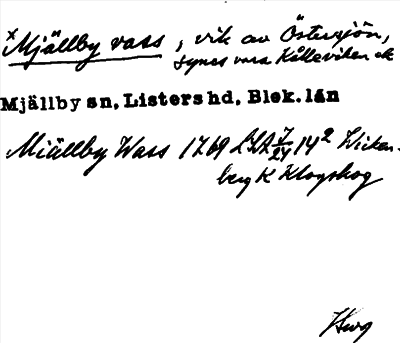 ×Mjällby vass, vik av Östersjön,
synes vara Källeviken ek
Mjällby sn, Listers hd, Blek. län
Miällby Wass 1769 LSA 7/24 14² Wicken-
berg K Klogskog